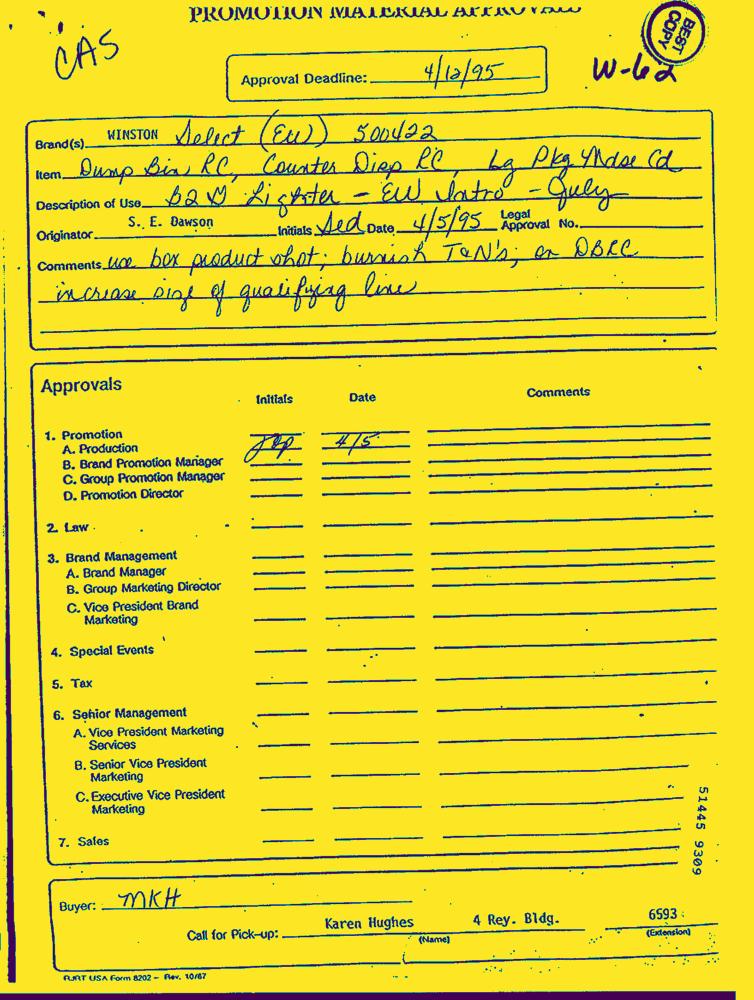 PROMOTION MATERIAL APPROVALS
BEST COPY
CAS
Approval Deadline: 4/12/95
W-62
Brand(s) WINSTON Select (EW) 500422
Item Dump Bin RC, Counter Disp RC, Lg Pkg Mdse Cd
Description of Use B2 Lighter - EW Intro - July
Originator S. E. Dawson Initials Sed Date 4/5/95 Legal Approval No.
Comments use box product shot; burnish T&N's; on DBRC
increase size of qualifying line
Approvals
Initials Date Comments
1. Promotion
A. Production 4/5
B. Brand Promotion Manager
C. Group Promotion Manager
D. Promotion Director
2. Law
3. Brand Management
A. Brand Manager
B. Group Marketing Director
C. Vice President Brand
Marketing
4. Special Events
5. Tax
6. Senior Management
A. Vice President Marketing
Services
B. Senior Vice President
Marketing
C. Executive Vice President
Marketing
7. Sales
51445 9309
Buyer: MKH
Call for Pick-up: Karen Hughes 4 Rey. Bldg. 6593
(Name) (Extension)
RJRT USA Form 8202 - Rev. 10/87